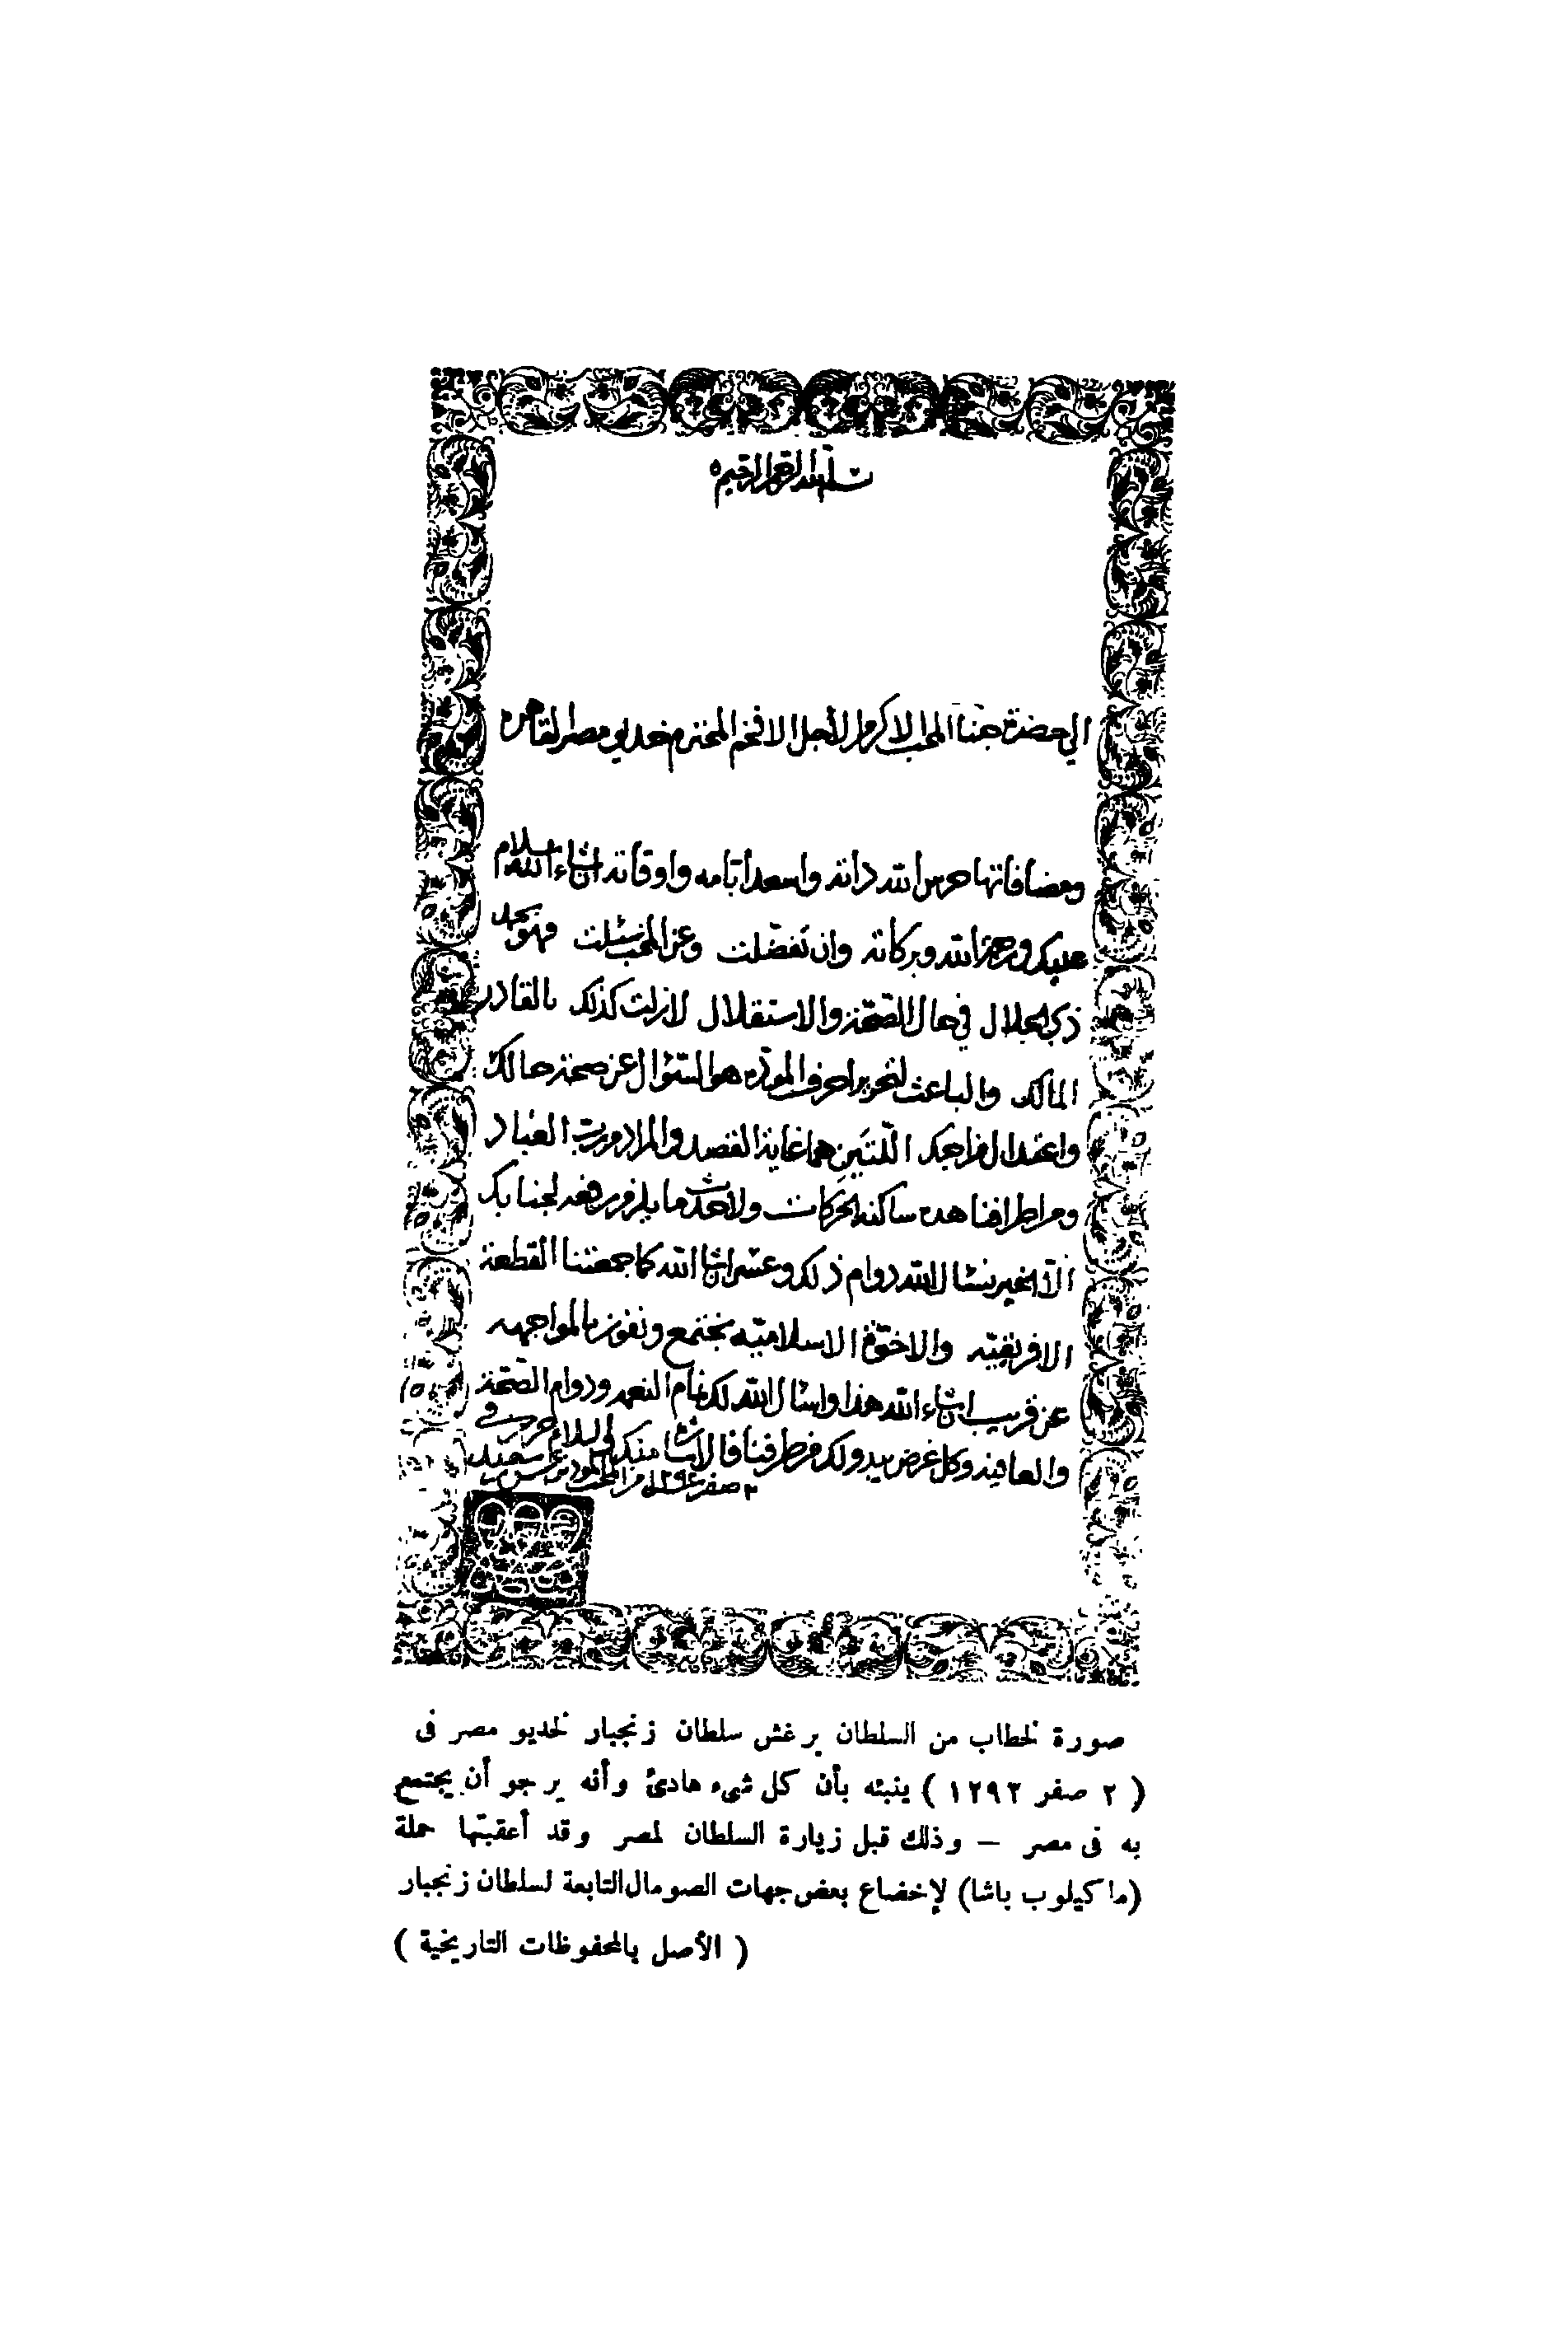 بسم الله الرحمن الرحيم
الى حضرة جناب المحب الاكرم الأجل الافخم المحترم خديوي مصر القاهره
ومضافاتها حرس الله ذاته واسعد أيامه واوقاته ان شاء الله سلام
عليكم ورحمة الله وبركاته وان تفضلت وعن المحب سئلت فهو بحمد
ذي الجلال في حال الصحّة والاستقلال لازلت كذلك بالقادر
المالك والباعث لتحرير احرف المودّه هو السئوال عن صحة حالك
واعتدال مزاجك اللّتين هما غاية القصد والمراد من رب العباد
ومن اطرافنا هده ساكنة الحركات ولا حدث ما يلزم رفعه لجنابكم
الّا الخير نسئال الله دوام ذلك وعسى ان شا الله كما جمعتنا القطعة
الافريقيّه والاخوّة الاسلاميّه نجتمع ونفوز بالمواجهه
عن قريب ان شاء الله هذا واسئال الله لك تمام النعمه ودوام الصّحّة
والعافية وكل غرض يبدو لك من طرفنا فالاشاره منكم والسلام حرر في
٢ صفر من المحب برغش بن سعيد
صورة لخطاب من السلطان برغش سلطان زنجبار لخديو مصر فى
( ٢ صفر ١٢٩٣ ) ينبئه بأن كل شىء هادئ وأنه يرجو أن يجتمع
به فى مصر – وذلك قبل زيارة السلطان لمصر وقد أعقبتها حملة
(ماكيلوب باشا) لإخضاع بعض جهات الصومال التابعة لسلطان زنجبار
( الأصل بالمحفوظات التاريخية )